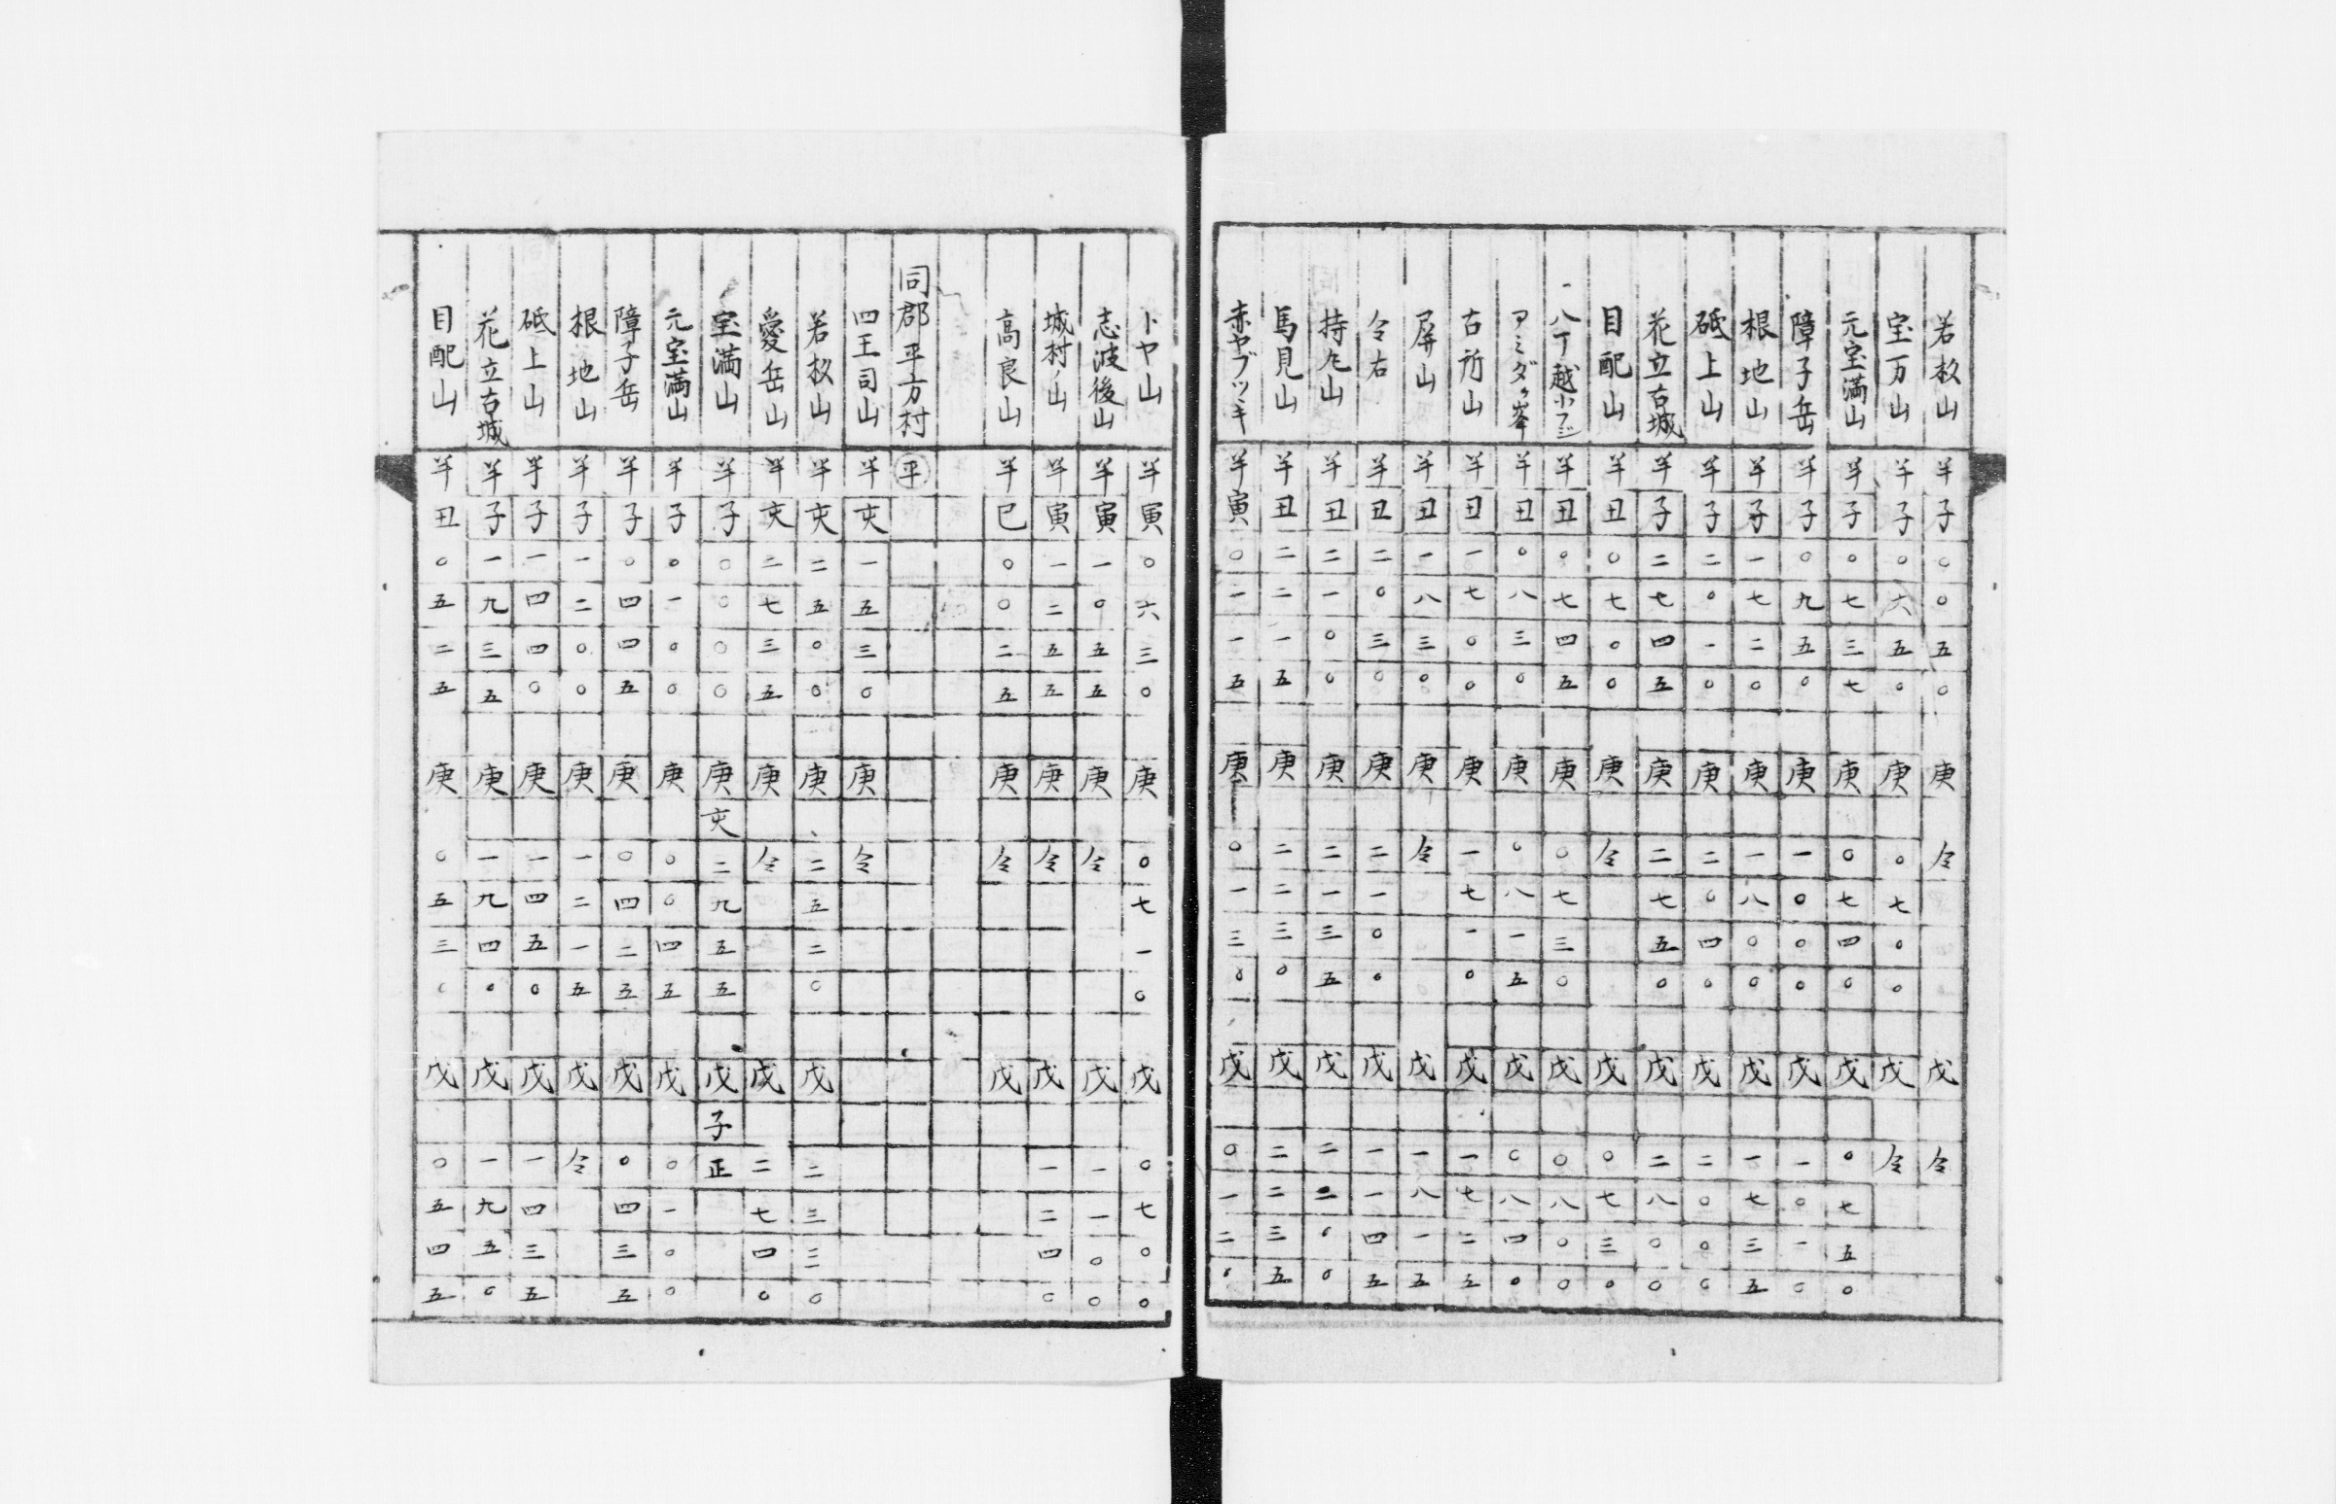 若杦山 半子〇〇五〇 庚 仝 戊 仝
宝万山 半子〇六五〇 庚 〇七〇〇 戊 仝
元宝満山 半子〇七三七 庚 〇七四〇 戊 〇七五〇
障子岳 半子〇九五〇 庚 一〇〇〇 戊 一〇一〇
根地山 半子一七二〇 庚 一八〇〇 戊 一七三五
砥上山 半子二〇一〇 庚 二〇四〇 戊 二〇〇〇
花立古城 半子二七四五 庚 二七五〇 戊 二八〇〇
目配山 半丑〇七〇〇 庚 仝 戊 〇七三〇
八丁越 半丑〇七四五 庚 〇七三〇 戊 〇八〇〇
アミダヶ峯 半丑〇八三〇 庚 〇八一五 戊 〇八四〇
古所山 半丑一七〇〇 庚 一七一〇 戊 一七二五
屏山 半丑一八三〇 庚 仝 戊 一八一五
仝右 半丑二〇三〇 庚 二一〇〇 戊 一一四五
持丸山 半丑二一〇〇 庚 二一三五 戊 二二〇〇
馬見山 半丑二二一五 庚 二二三〇 戊 二二三五
赤ヤブツヽキ 半寅〇一一五 庚 〇一三〇 戊 〇一二〇
トヤ山 半寅〇六三〇 庚 〇七一〇 戊 〇七〇〇
志波後山 半寅一〇五五 庚 仝 戊 一一〇〇
城村ノ山 半寅一二五五 庚 仝 戊 一二四〇
高良山 半巳〇〇二五 庚 仝 戊
同郡平方村 平
四王司山 半亥一五三〇 庚 仝
若杦山 半亥二五〇〇 庚 二五二〇 戊 二三三〇
愛岳山 半亥二七三五 庚 仝 戊 二七四〇
宝満山 半子〇〇〇〇 庚亥二九五五 戊子正
元宝満山 半子〇一〇〇 庚 〇〇四五 戊 〇一〇〇
障子岳 半子〇四四五 庚 〇四二五 戊 〇四三五
根地山 半子一二〇〇 庚 一二一五 戊 仝
砥上山 半子一四四〇 庚 一四五〇 戊 一四三五
花立古城 半子一九三五 庚 一九四〇 戊 一九五〇
目配山 半丑〇五二五 庚 〇五三〇 戊 〇五四五